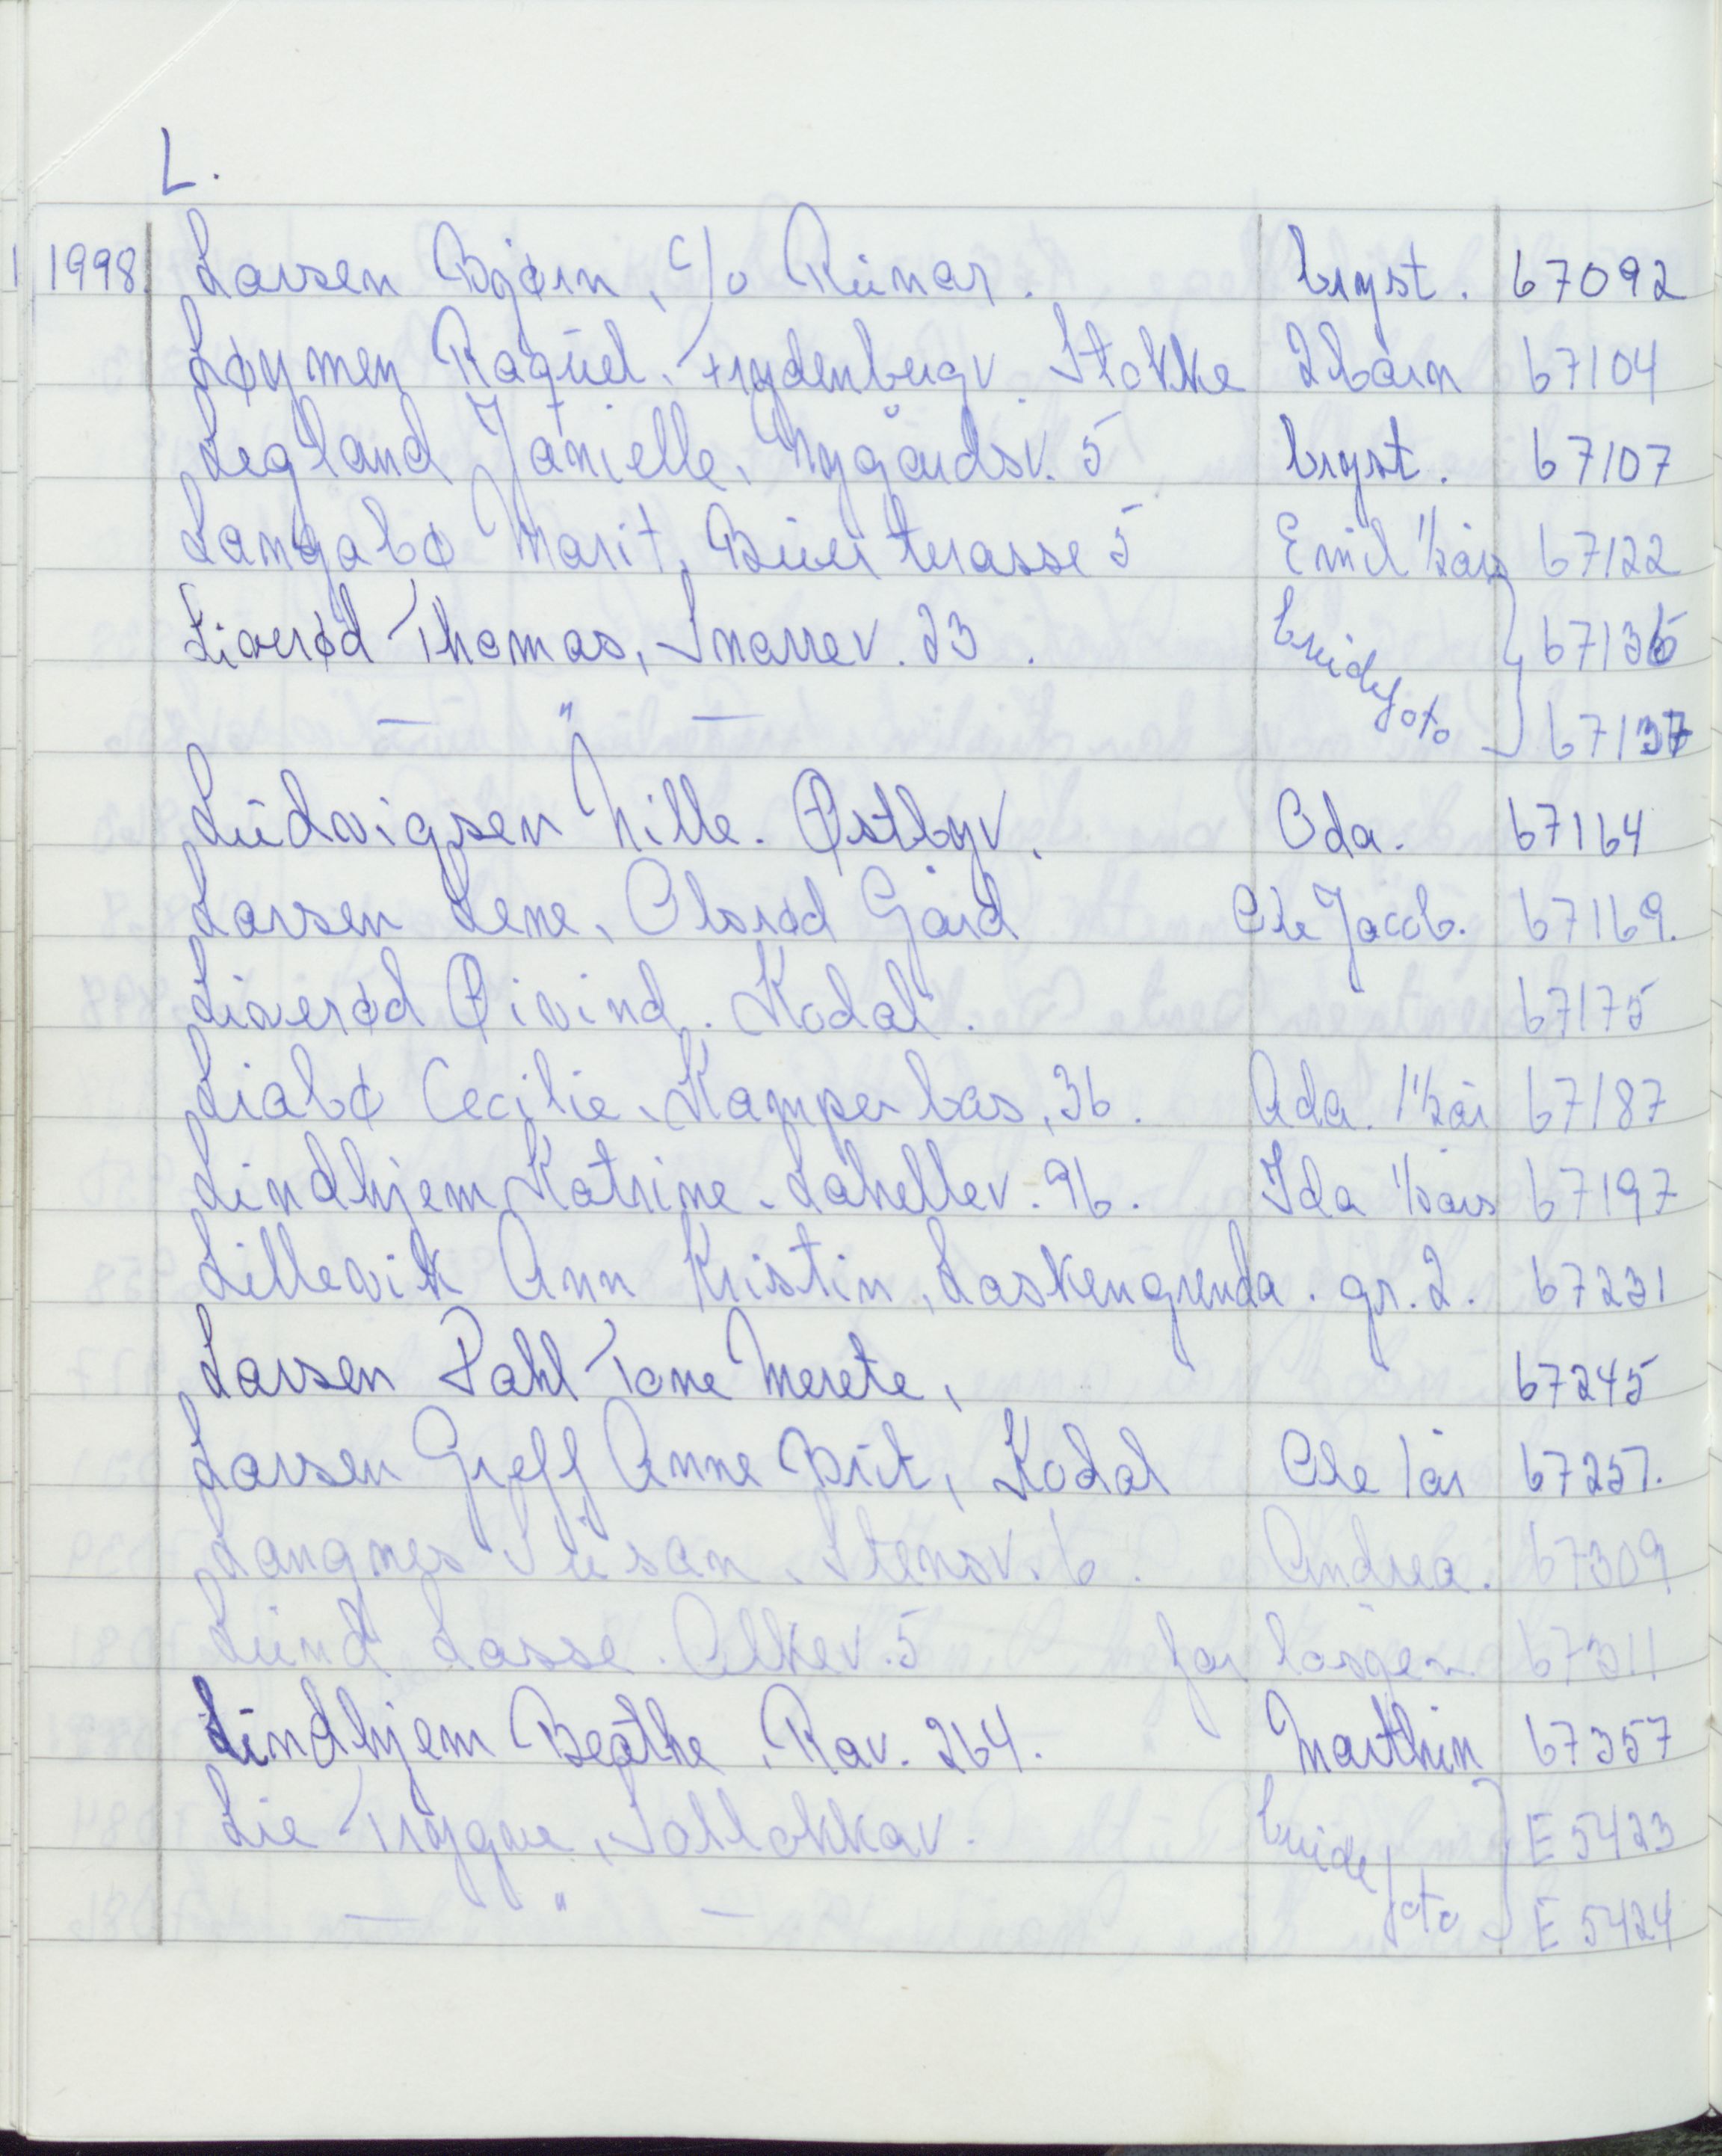 L.
1998. Larsen Bjørn, c/o Runar. bryst. 67092
Løymen Raquel. Frydenbergv. Stokke 2barn 67104
Legland Janielle, Nygårdsv. 5 bryst. 67107
Langabø Marit, Buer terasse 5 Emil 1/2års 67122
Liverød Thomas, Snarrev. 23. brudefoto 67136
— " — 67137
Ludvigsen Nille. Østbyv. Oda. 67164
Larsen Lene, Olsrød Gård Ole Jacob. 67169.
Liverød Øivind. Kodal. 67175
Liabø Cecilie, Kamperbås, 36. Ada. 1 1/2år 67187
Lindhjem Katrine. Lahellev. 96. Ida 1/2års 67197
Lillevik Ann Kristin, Laskengrenda. gr. 2. 67231
Larsen Dahl Tone Merete, 67245
Larsen Greff Anne Brit, Kodal Ole 1år 67257.
Langnes Susan. Stensv. 6. Andrea. 67309
Lund Lasse. Alkev. 5 farlasgen 67311
Lindhjem Beathe, Rav. 264. Marthin 67357
Lie Trygve, Solløkkav. brudefoto E 5423
— " — E 5424